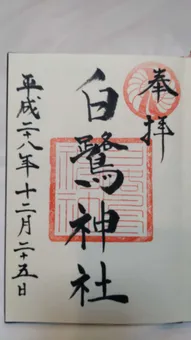 奉拝
白鷺神社
平成二八年十二月二十五日